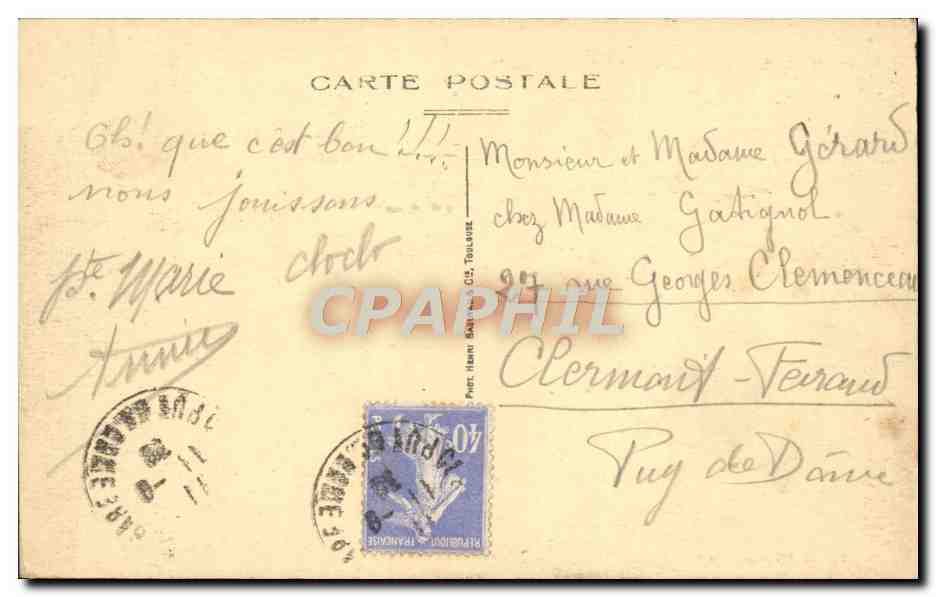 CARTE POSTALE
Oh! que c'est bon!!!...
nous jouissons....
Pte. Marie cloclo
Annie
Monsieur et Madame Gérard
chez Madame Gatignol
27 rue Georges Clemenceau
Clermont-Ferrand
Puy de Dôme
PHOT. HENRI & Cie, TOULOUSE
CPAPHIL
40c
REPUBLIQUE FRANÇAISE